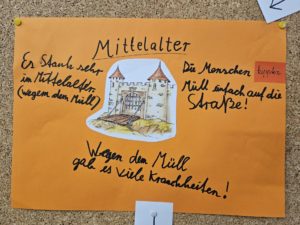 Mittelalter
Es Stank sehr
im Mittelalter.
(wegem dem Müll)
Die Menschen kippten
Müll einfach auf die
Straße!
Wegen dem Müll
gab es viele Krankheiten!